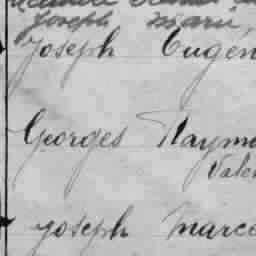 Joseph Marie,
Joseph Eugen
Georges Raymo
Valen
Joseph Marce